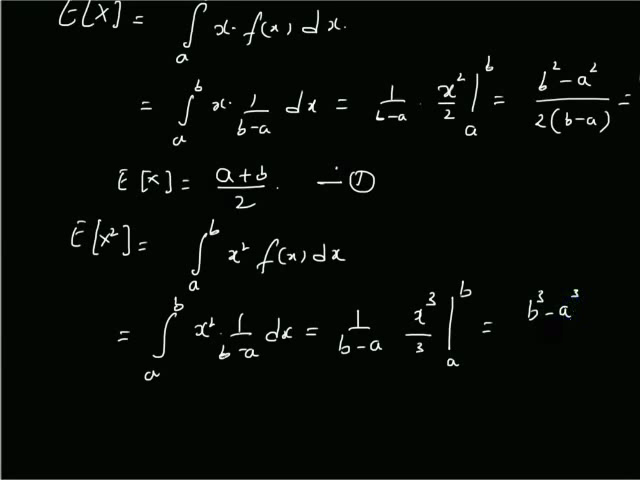 E[X] = ∫ₐ x. f(x) dx.
= ∫ₐᵇ x. 1/(b-a) dx = 1/(b-a) . x²/2 |ₐᵇ = (b²-a²)/(2(b-a)) =
E[X] = (a+b)/2. — ①
E[X²] = ∫ₐᵇ x² f(x) dx
= ∫ₐᵇ x². 1/(b-a) dx = 1/(b-a) x³/3 |ₐᵇ = b³-a³